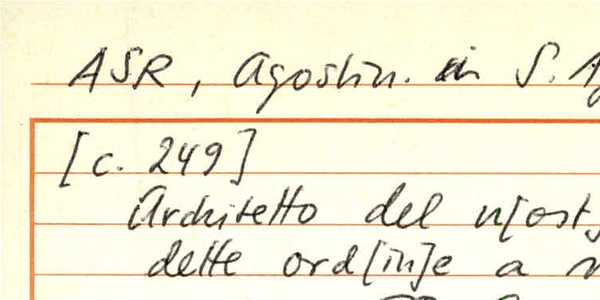 ASR, Agostin. in S. Ag
[c. 249]
Architetto del n[ost
dette ord[in]e a